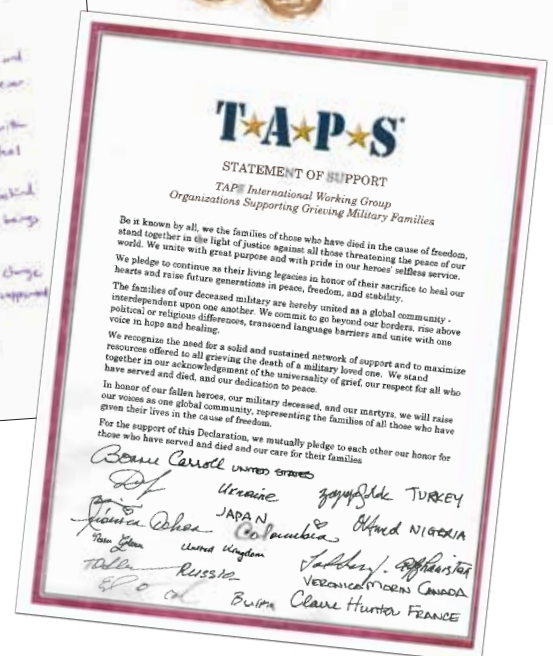 and
with
behind
beings
change
T★A★P★S
STATEMENT OF SUPPORT
TAPS International Working Group
Organizations Supporting Grieving Military Families
Be it known by all, we the families of those who have died in the cause of freedom,
stand together in the light of justice against all those threatening the peace of our
world. We unite with great purpose and with pride in our heroes' selfless service.
We pledge to continue as their living legacies in honor of their sacrifice to heal our
hearts and raise future generations in peace, freedom, and stability.
The families of our deceased military are hereby united as a global community -
interdependent upon one another. We commit to go beyond our borders, rise above
political or religious differences, transcend language barriers and unite with one
voice in hope and healing.
We recognize the need for a solid and sustained network of support and to maximize
resources offered to all grieving the death of a military loved one. We stand
together in our acknowledgement of the universality of grief, our respect for all who
have served and died, and our dedication to peace.
In honor of our fallen heroes, our military deceased, and our martyrs, we will raise
our voices as one global community, representing the families of all those who have
given their lives in the cause of freedom.
For the support of this Declaration, we mutually pledge to each other our honor for
those who have served and died and our care for their families
Bonnie Carroll UNITED STATES
Ukraine TURKEY
JAPAN
Columbia NIGERIA
United Kingdom Afghanistan
Russia VERONICA MORIN CANADA
Burma Claire Hunter FRANCE